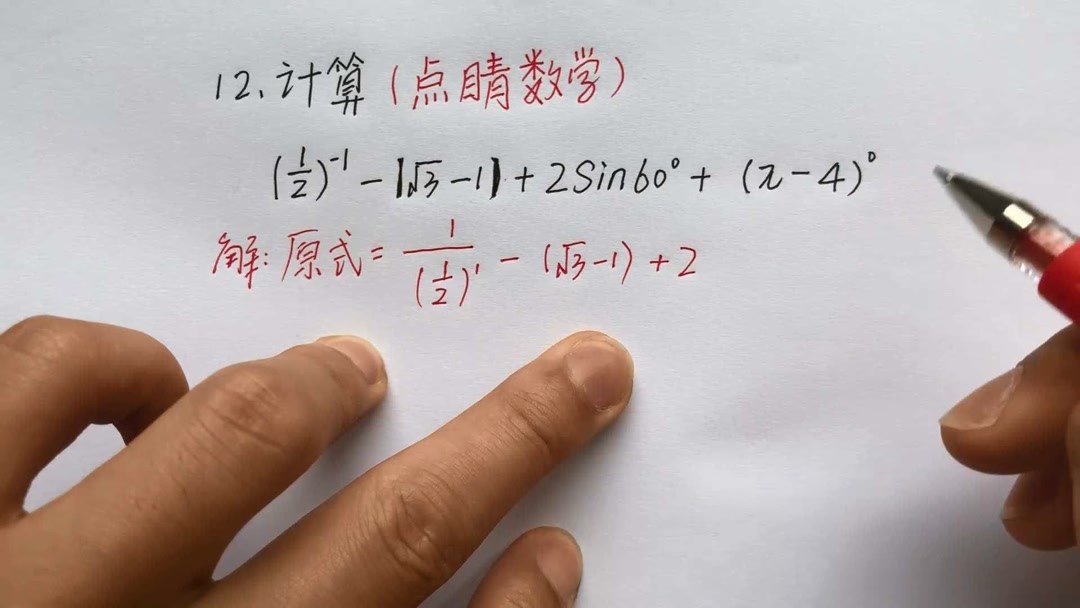 12.计算(点睛数学)
(1/2)⁻¹ - |√3-1| + 2Sin60° + (π-4)⁰
解:原式= 1/(1/2)¹ - (√3-1) + 2